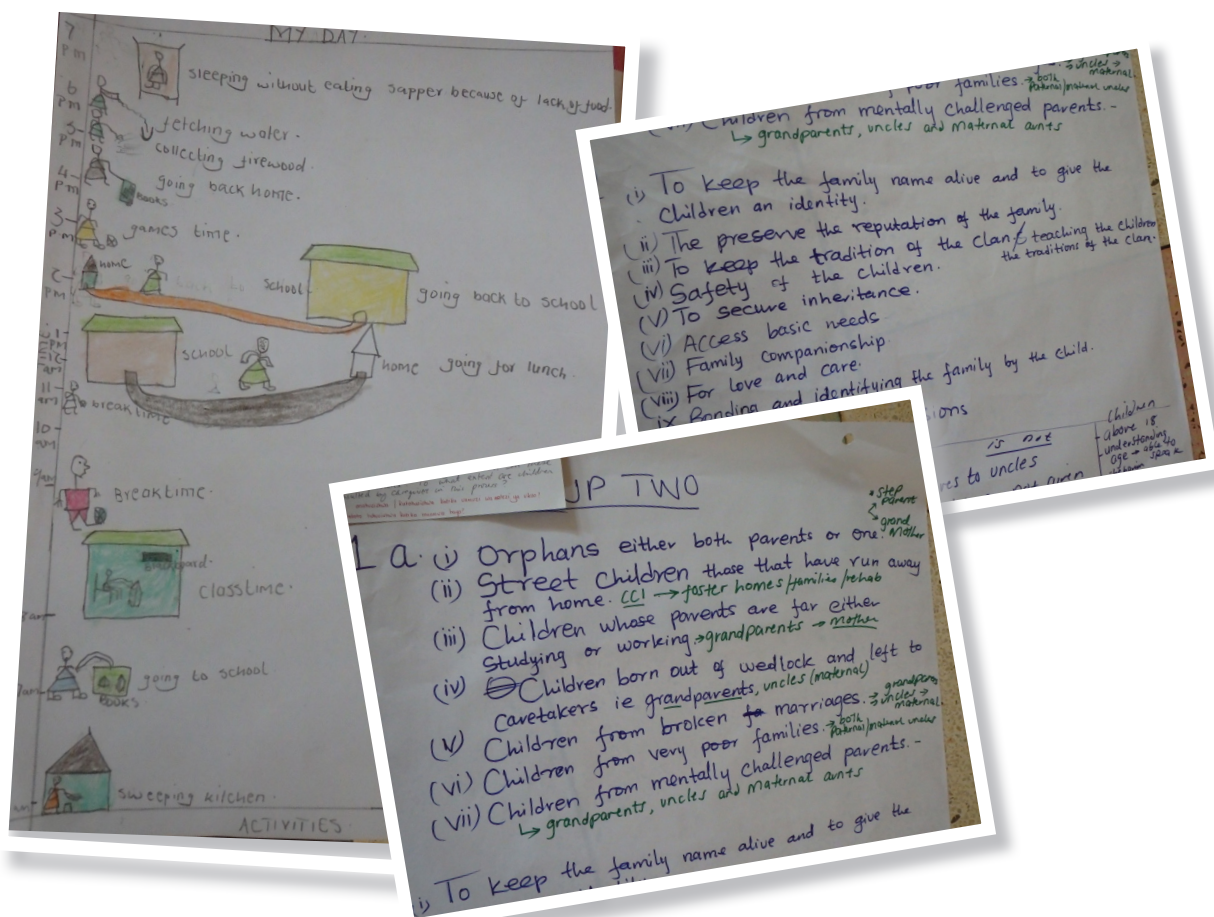 MY DAY.
7
pm
sleeping without eating sapper because of lack of food.
6
pm
fetching water.
5
pm
collecting firewood.
4
pm
going back home.
books
3
pm
games time.
home
2
pm
school
going back to school
1
pm
school
home going for lunch.
11
am
breaktime
10
am
Breaktime.
Classtime.
8am
going to school
books
7am
sweeping kitchen.
ACTIVITIES.
poor families. → both
paternal/maternal uncles
→ uncles →
maternal.
Children from mentally challenged parents. -
↳ grandparents, uncles and maternal aunts
(i) To keep the family name alive and to give the
children an identity.
(ii) The preserve the reputation of the family.
(iii) To keep the tradition of the clan / teaching the children
the traditions of the clan.
(iv) Safety of the children.
(v) To secure inheritance.
(vi) Access basic needs
(vii) Family companionship
(viii) For love and care.
ix Bonding and identifying the family by the child.
sions
is not
res to uncles
children
- above 18
- understanding
age → able to
UP TWO
step
parent
grand
mother
1 a. (i) Orphans either both parents or one.
(ii) Street Children those that have run away
from home. CCI → foster homes/families/rehab
(iii) Children whose parents are far either
studying or working → grandparents → mother
(iv) Children born out of wedlock and left to
caretakers ie grandparents, uncles (maternal)
(v) Children from broken marriages. → grandparents
→ uncles →
maternal.
(vi) Children from very poor families. → both
paternal/maternal uncles
(vii) Children from mentally challenged parents. -
↳ grandparents, uncles and maternal aunts
i) To keep the family name alive and to give the